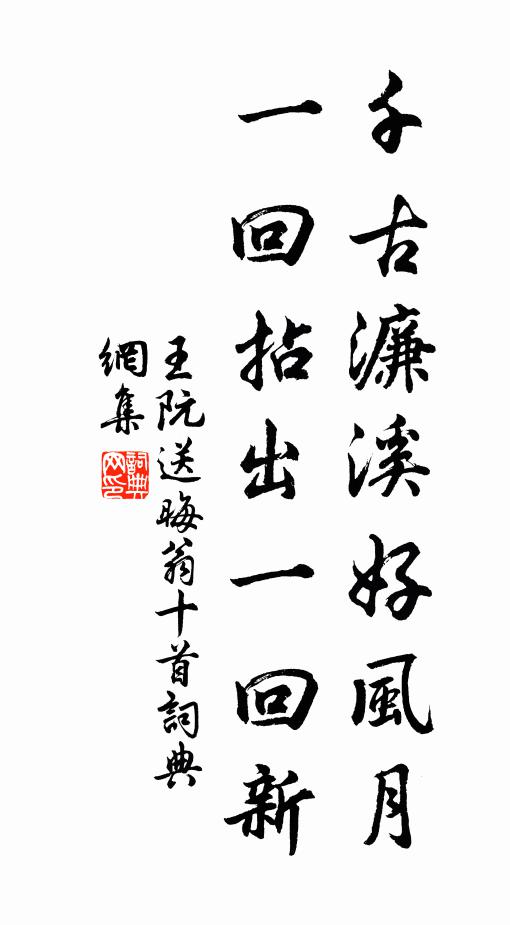 千古濂溪好風月
一回拈出一回新
王阮送晦翁十首詞典
網集
詞典
网印